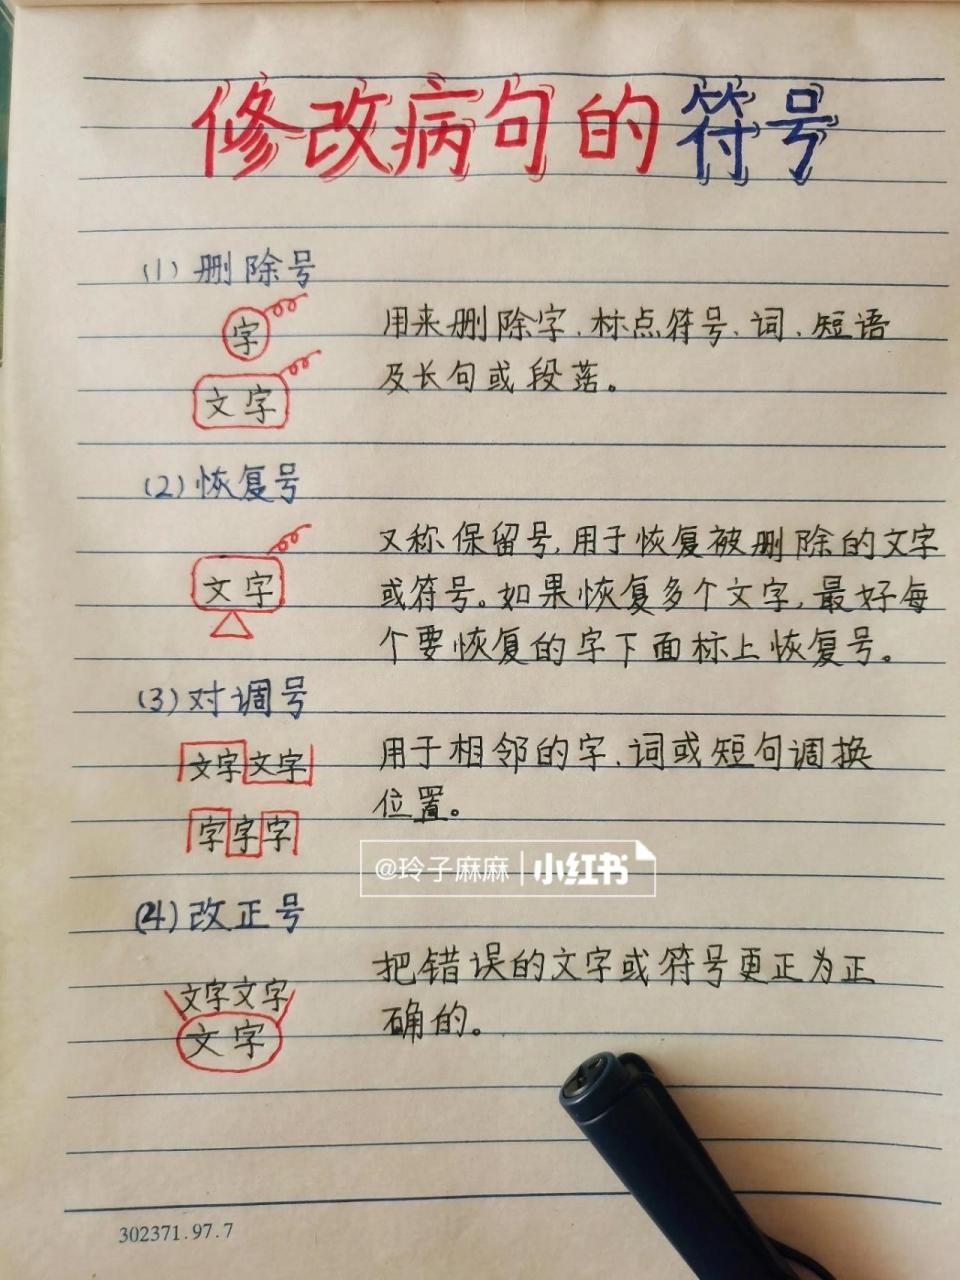 修改病句的符号
(1) 删除号
字
文字
用来删除字、标点符号、词、短语
及长句或段落。
(2) 恢复号
文字
又称保留号,用于恢复被删除的文字
或符号。如果恢复多个文字,最好每
个要恢复的字下面标上恢复号。
(3) 对调号
文字文字
字字字
用于相邻的字、词或短句调换
位置。
@玲子麻麻 | 小红书
(4) 改正号
文字文字
文字
把错误的文字或符号更正为正
确的。
302371.97.7